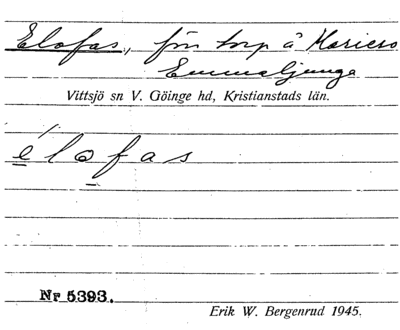 Elofas, förr torp å
Emmaljunga
Vittsjö sn V. Göinge hd, Kristianstads län.
élofas
Nr 5393.
Erik W. Bergenrud 1945.